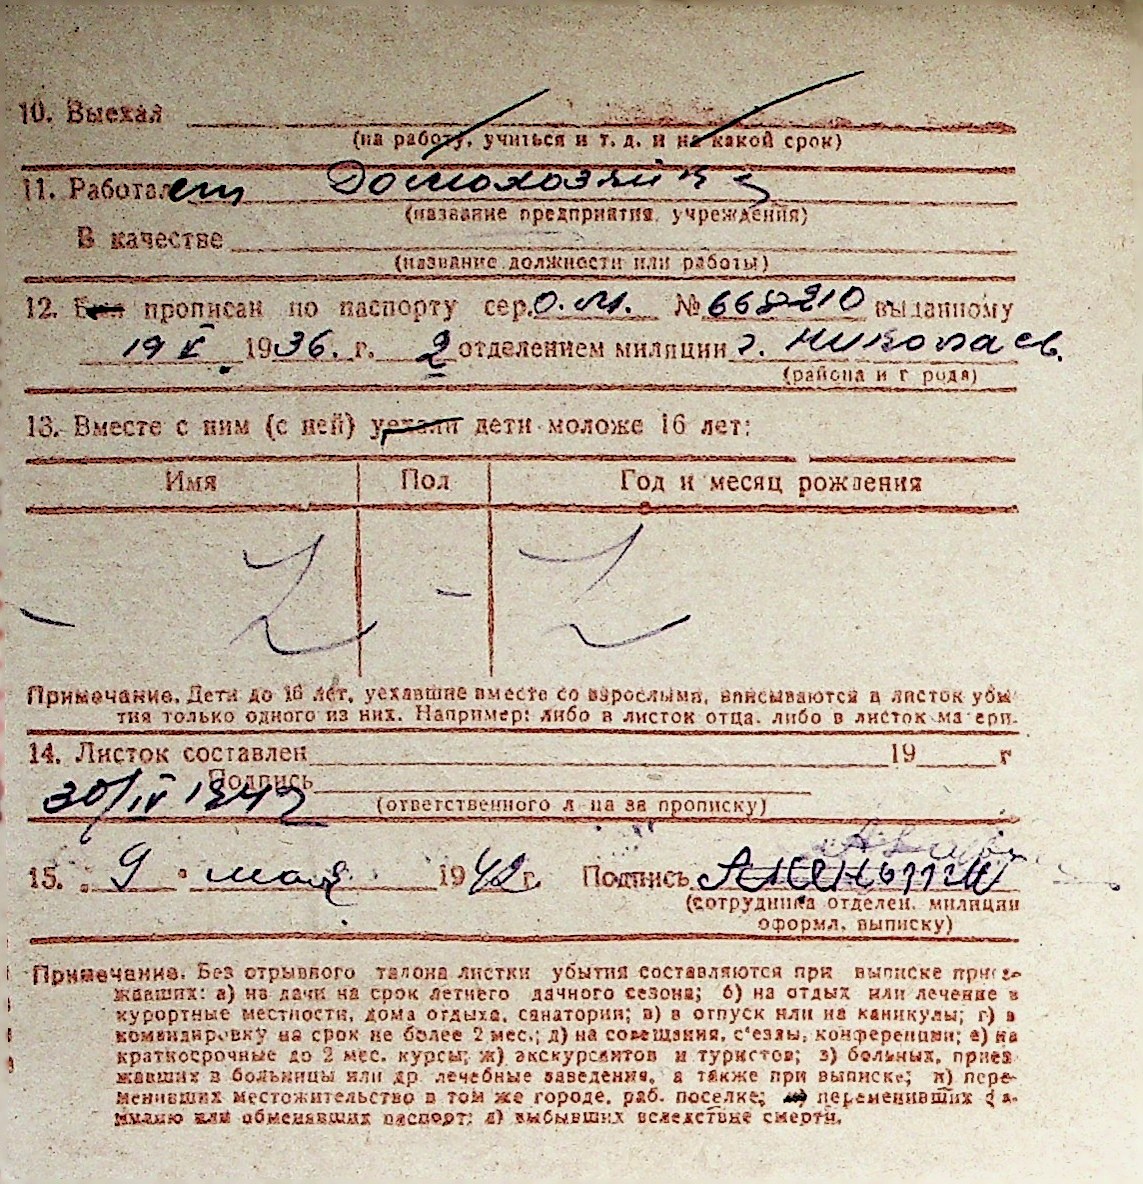 10. Выехал
(на работу, учиться и т. д. и на какой срок)
11. Работает Домохозяйка
(название предприятия, учреждения)
В качестве
(название должности или работы)
12. Был прописан по паспорту сер. О.М. № 668210 выданному
19 V 1936. г. 2 отделением милиции г. Николаев.
(района и города)
13. Вместе с ним (с ней) уехали дети моложе 16 лет:
Имя Пол Год и месяц рождения
Примечание. Дети до 16 лет, уехавшие вместе со взрослыми, вписываются в листок убы-
тия только одного из них. Например: либо в листок отца, либо в листок матери.
14. Листок составлен 19 г
Подпись
30/IV 1942
(ответственного лица за прописку)
15. „ 9 " мая 1942 г. Подпись
(сотрудника отделен. милиции
оформл. выписку)
Примечание. Без отрывного талона листки убытия составляются при выписке приез-
жавших: а) на дачи на срок летнего дачного сезона; б) на отдых или лечение в
курортные местности, дома отдыха, санатории; в) в отпуск или на каникулы; г) в
командировку на срок не более 2 мес.; д) на совещания, с'езды, конференции; е) на
краткосрочные до 2 мес. курсы; ж) экскурсантов и туристов; з) больных, приез-
жавших в больницы или др. лечебные заведения, а также при выписке; и) пере-
менивших местожительство в том же городе, раб. поселке; переменивших фа-
милию или обменявших паспорт; л) выбывших вследствие смерти.